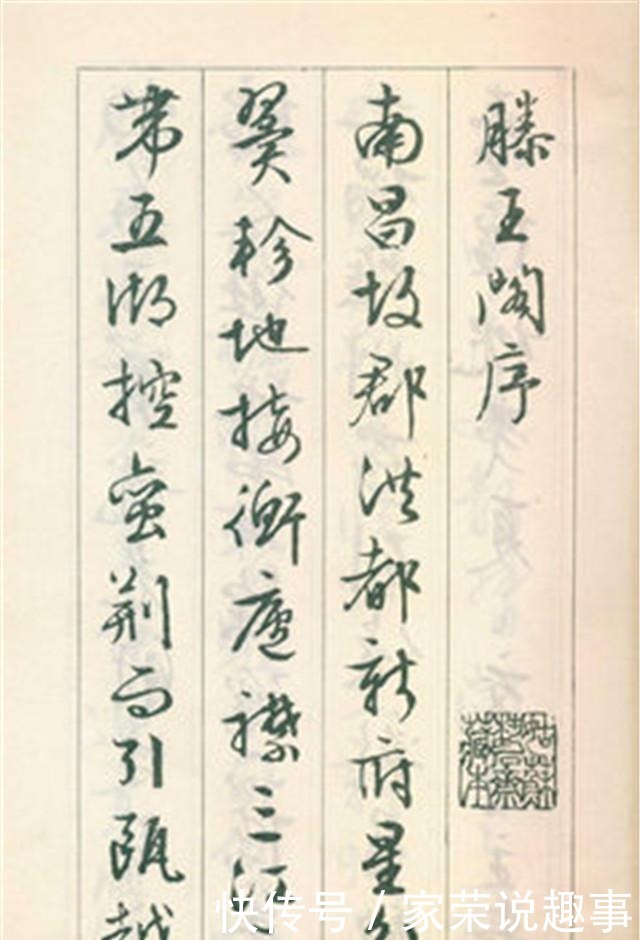 滕王阁序
南昌故郡洪都新府星分
翼轸地接衡庐襟三江
带五湖控蛮荆而引瓯越
快传号／家荣说趣事